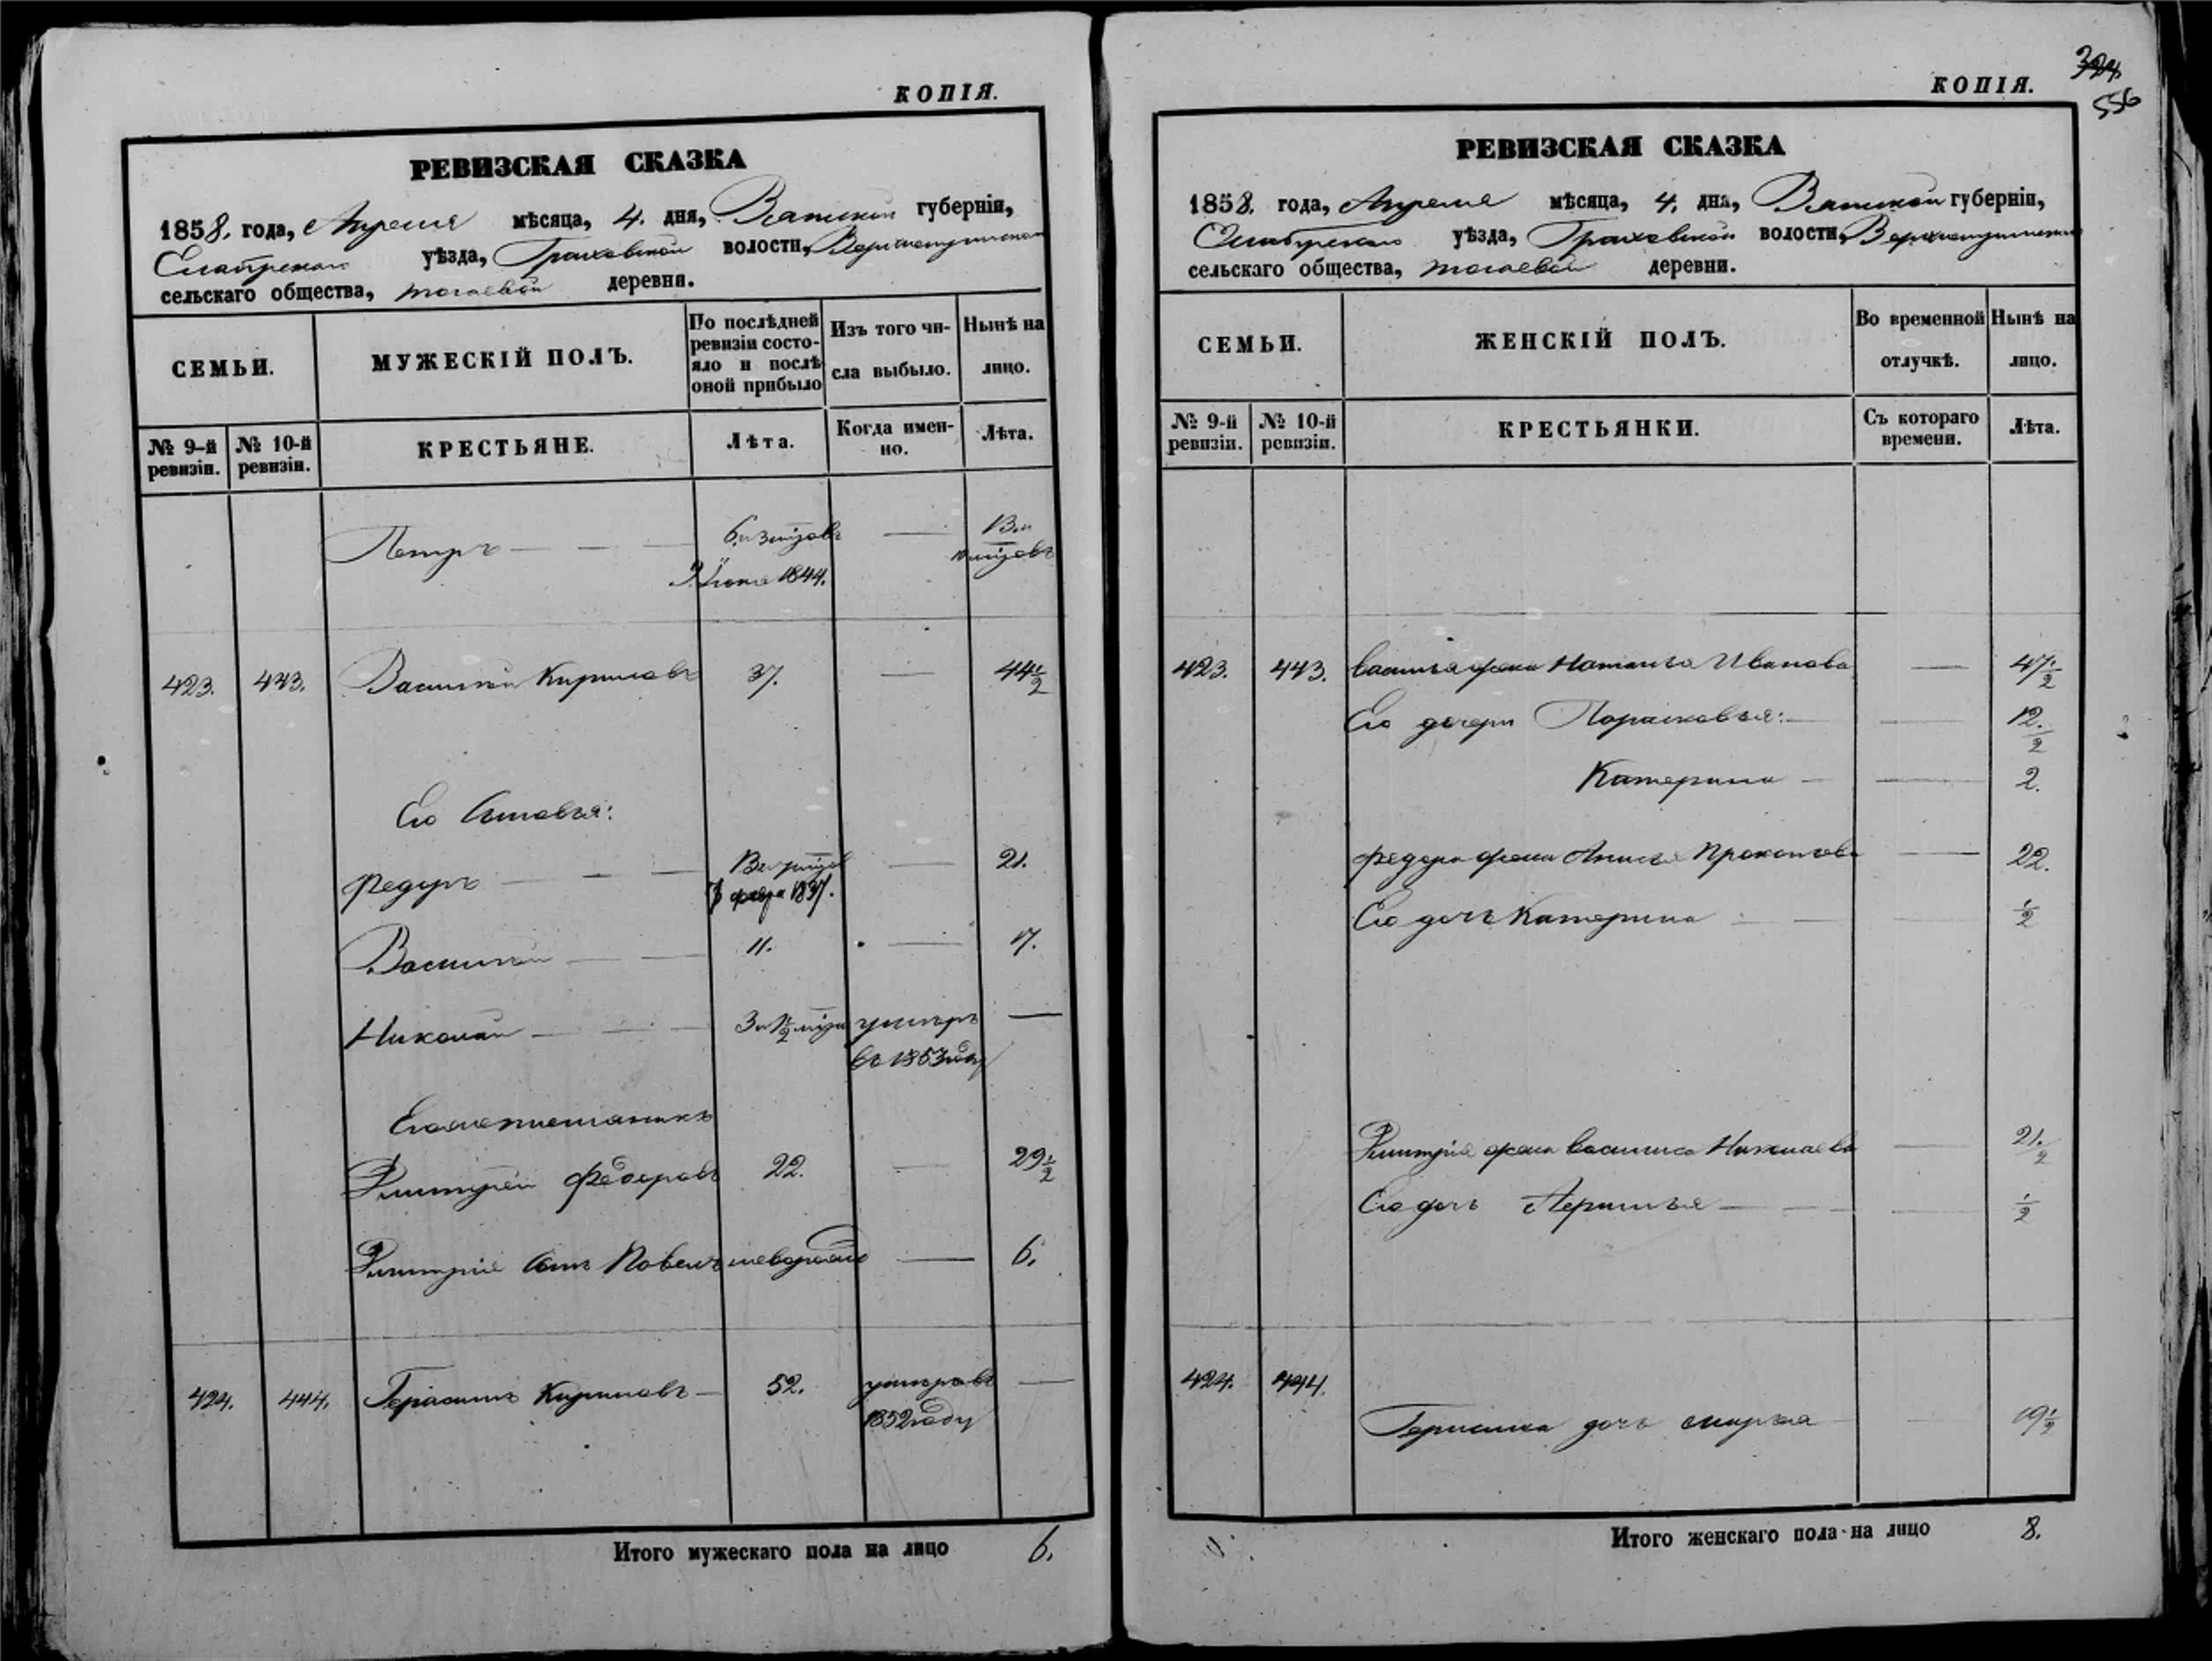 КОПІЯ.
РЕВИЗСКАЯ СКАЗКА
1858. года, Апреля мѣсяца, 4. дня, Вятской губерніи,
Елабужскаго уѣзда, Граховской волости,
сельскаго общества, деревни.
СЕМЬИ.
МУЖЕСКІЙ ПОЛЪ.
По послѣдней ревизіи состо-
яло и послѣ
оной прибыло
Изъ того чи-
сла выбыло.
Нынѣ на
лицо.
№ 9-й
ревизіи.
№ 10-й
ревизіи.
КРЕСТЬЯНЕ.
Лѣта.
Когда имен-
но.
Лѣта.
Петръ 6. и 3 мѣсяцовъ 13. и
1844.
423. 443. Василій Кириловъ 37. 44 1/2
Его сыновья:
Федоръ 21.
1837.
Василій 11. 17.
Николай умеръ
въ 1853 году
Его племянникъ
Дмитрей Федоровъ 22. 29 1/2
Дмитрія сынъ Павелъ 6.
424. 444. Герасимъ Кириловъ 52. умеръ въ
1852 году
Итого мужескаго пола на лицо 6.
КОПІЯ.
324
556
РЕВИЗСКАЯ СКАЗКА
1858. года, Апреля мѣсяца, 4. дня, Вятской губерніи,
Елабужскаго уѣзда, Граховской волости,
сельскаго общества, деревни.
СЕМЬИ.
ЖЕНСКІЙ ПОЛЪ.
Во временной
отлучкѣ.
Нынѣ на
лицо.
№ 9-й
ревизіи.
№ 10-й
ревизіи.
КРЕСТЬЯНКИ.
Съ котораго
времени.
Лѣта.
423. 443. Василья жена Наталья Иванова 47 1/2
Его дочери Парасковья: 12 1/2
Катерина 2.
Федора жена Анисья Прокопьева 22.
Его дочь Катерина 1/2
Дмитрія жена Василиса Николаева 21 1/2
Его дочь 1/2
424. 444.
Герасима дочь Марья 19 1/2
Итого женскаго пола на лицо 8.